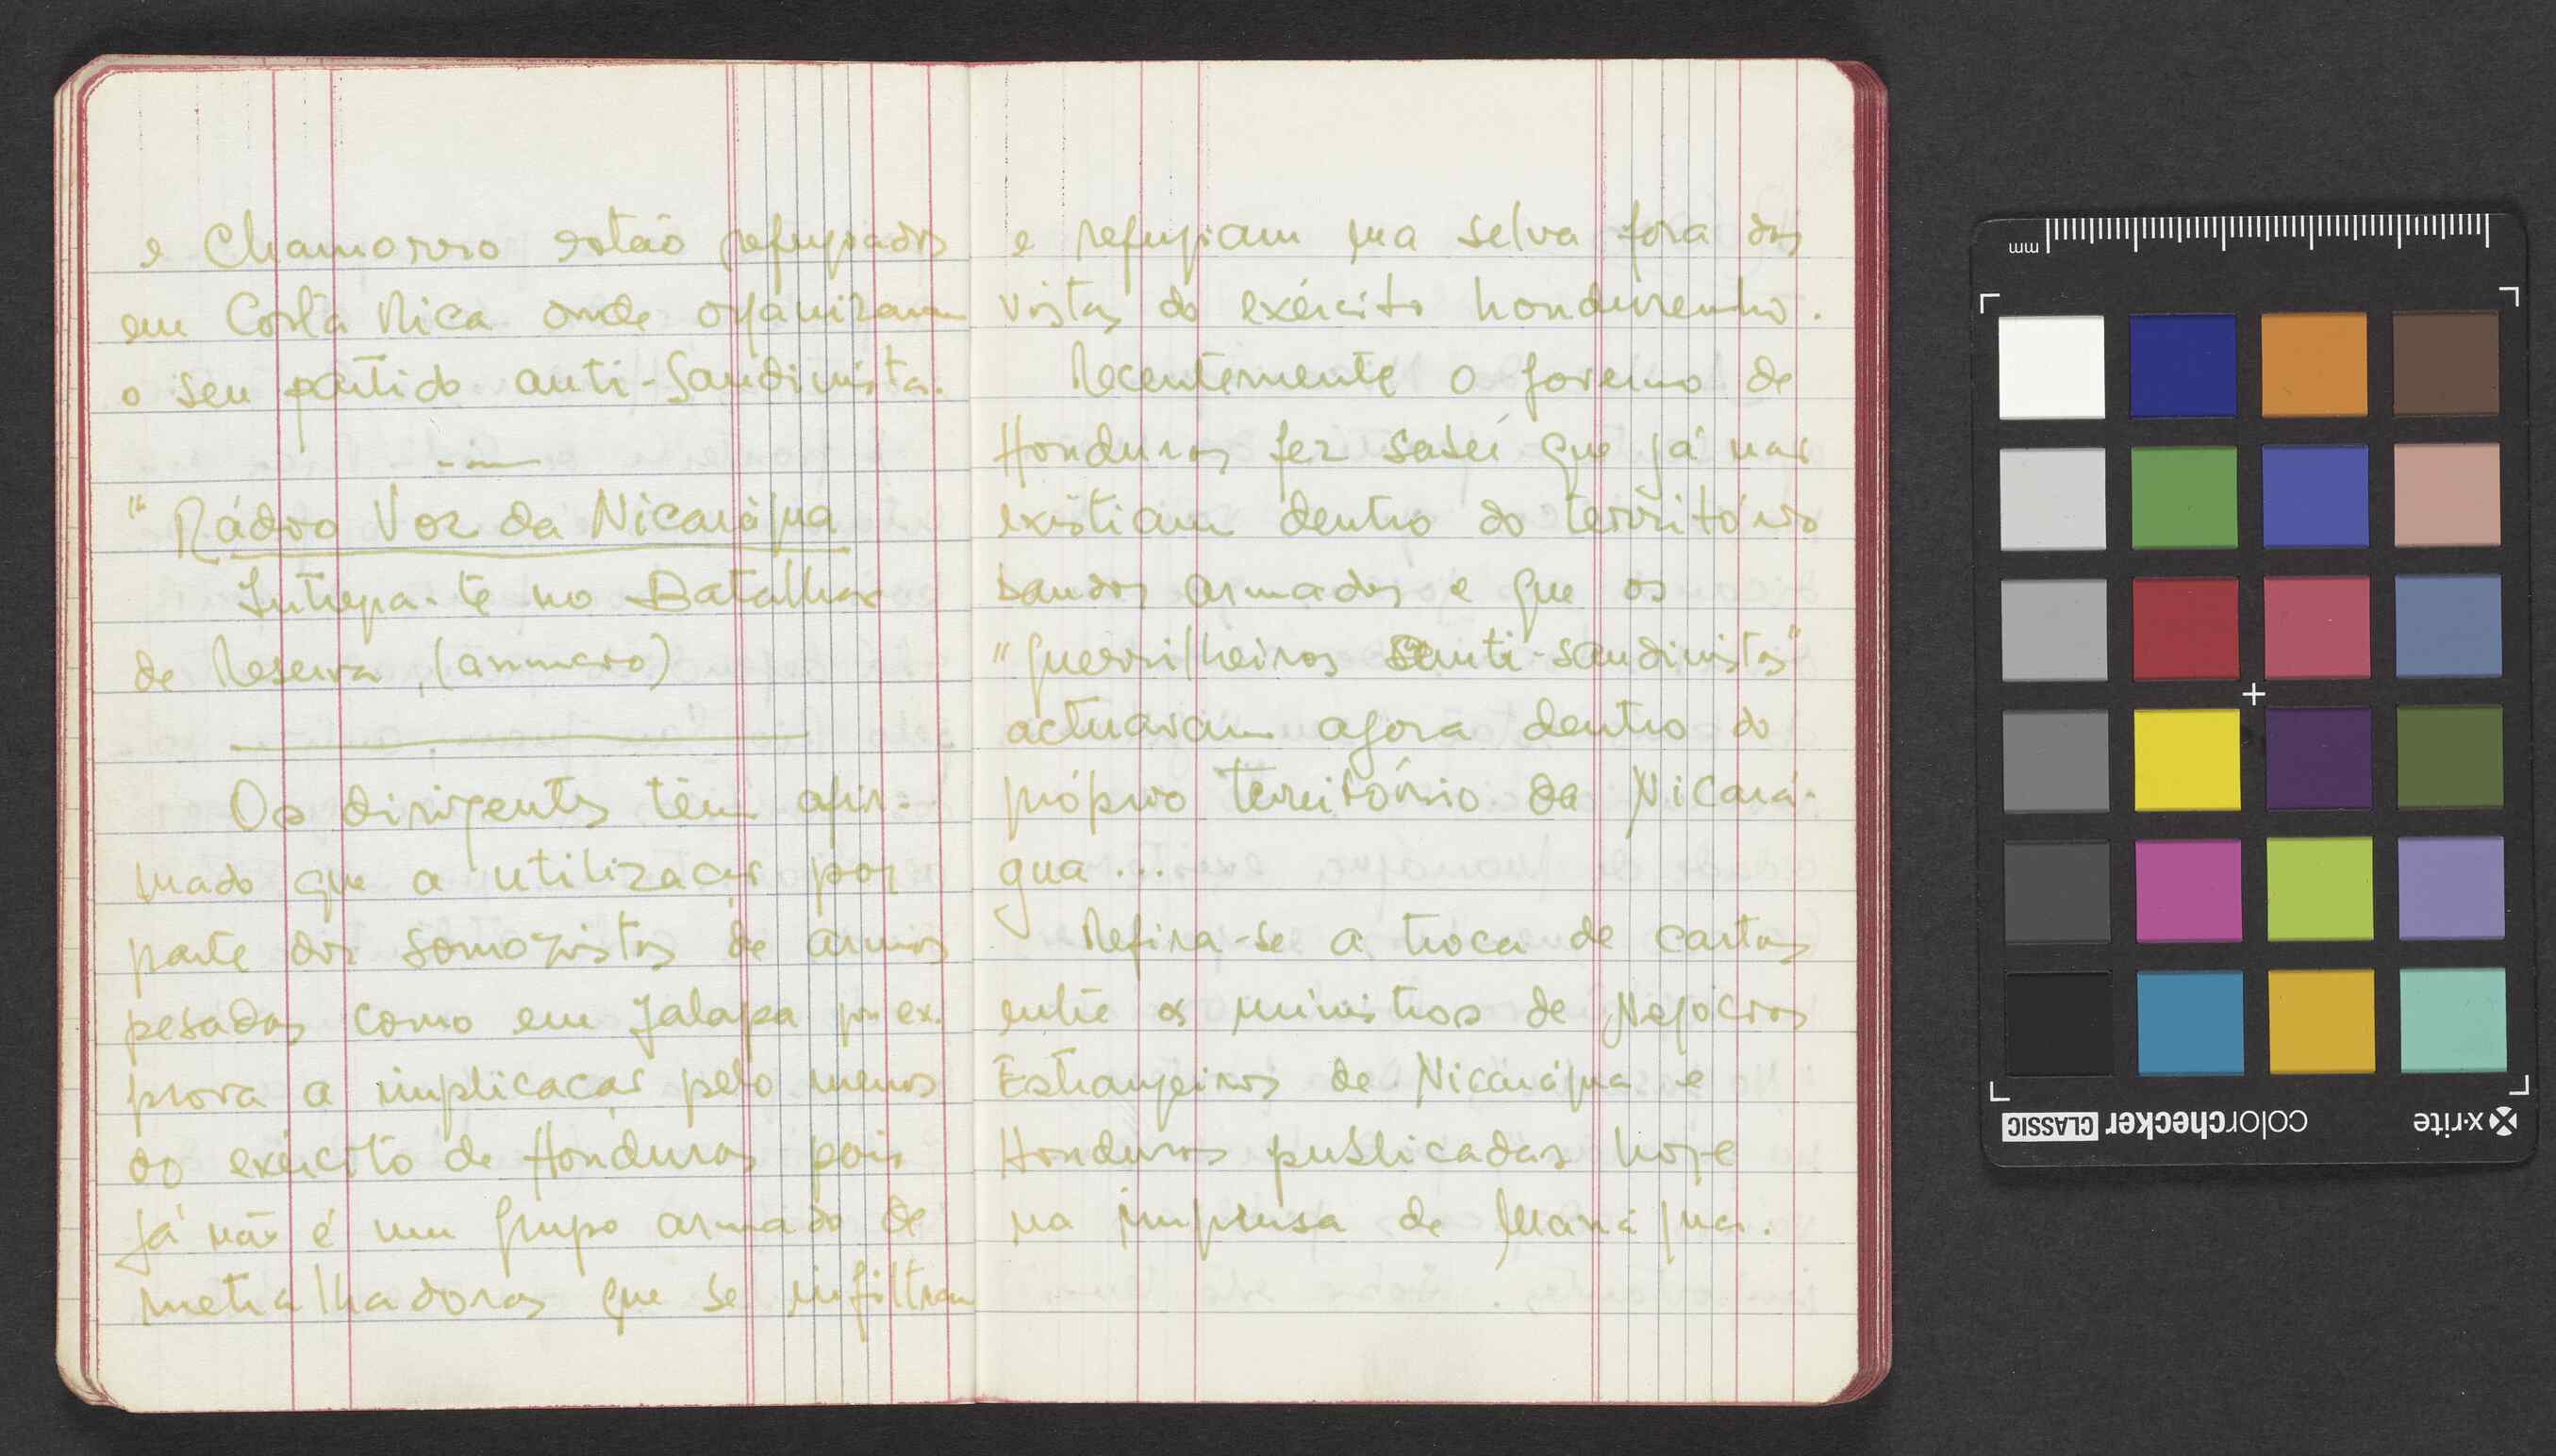 e Chamorro estão refugiados
em Costa Rica onde organizam
o seu partido anti-Sandinista.
"Rádio Voz da Nicarágua
Integra-te no Batalhão
de Reserva (anuncio)
Os dirigentes têm afir-
mado que a utilização por
parte dos somozistas de armas
pesadas como em Jalapa por ex.
prova a implicação pelo menos
do exército de Honduras pois
já não é um grupo armado de
metralhadoras que se infiltram
e refugiam na selva fora das
vistas do exército hondurenho.
Recentemente o governo de
Honduras fez saber que já não
existiam dentro do território
bandos armados e que os
"guerrilheiros anti-sandinistas"
actuavam agora dentro do
próprio território da Nicará-
gua...
Refira-se a troca de cartas
entre os ministros de Negócios
Estrangeiros de Nicarágua e
Honduras publicadas hoje
na imprensa de Manágua.
mm
x-rite
colorchecker CLASSIC